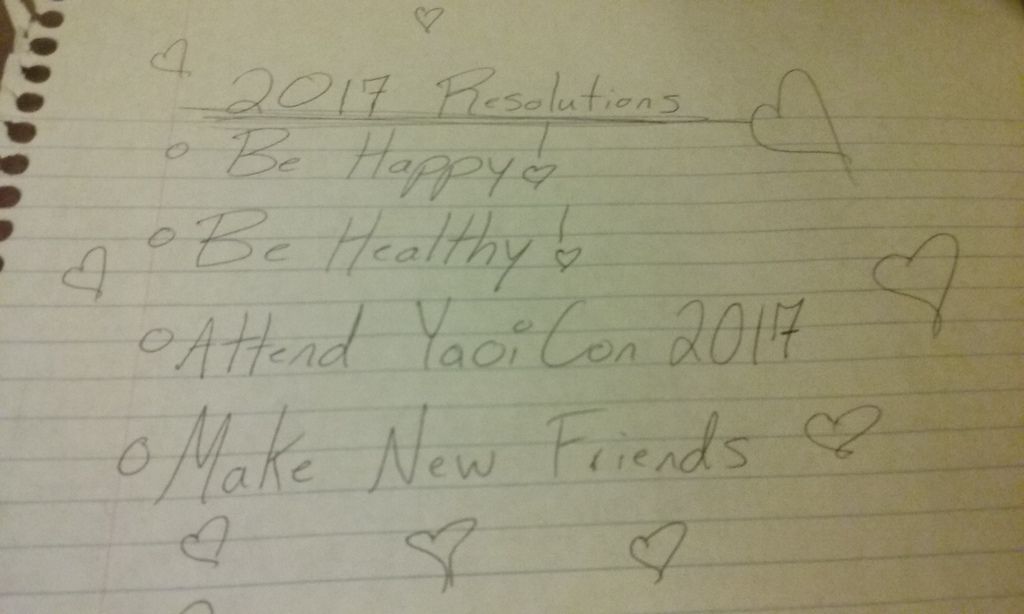 2017 Resolutions
Be Happy!
Be Healthy!
Attend YaoiCon 2017
Make New Friends